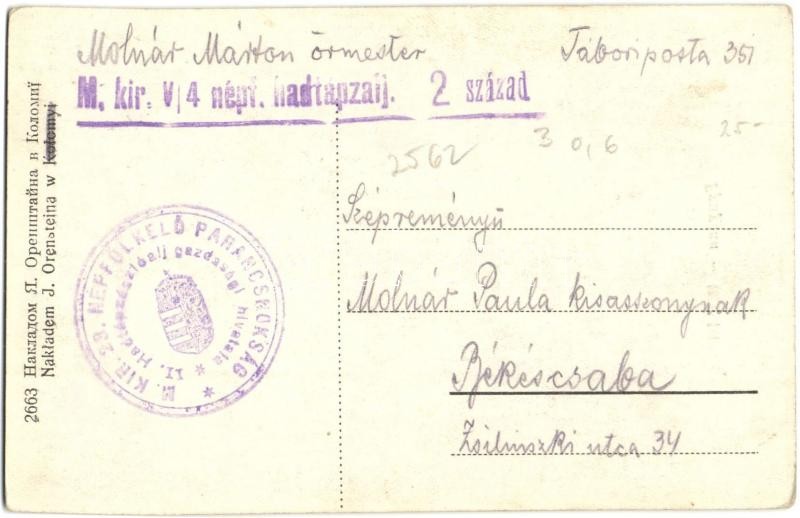 Molnár Márton őrmester
Tábori posta 351
M. kir. V/4 népf. hadtápzalj. 2 század
25-
3 0,6
2562
Szépreményű
Molnár Paula kisasszonynak
Békéscsaba
Zsilinszki utca 34
M. KIR. 29. NÉPFÖLKELŐ PARANCSNOKSÁG
II. gazdasági hivatala
2663 Накладом Я. Оренштайна в Коломиї
Nakładem J. Orensteina w Kołomyi